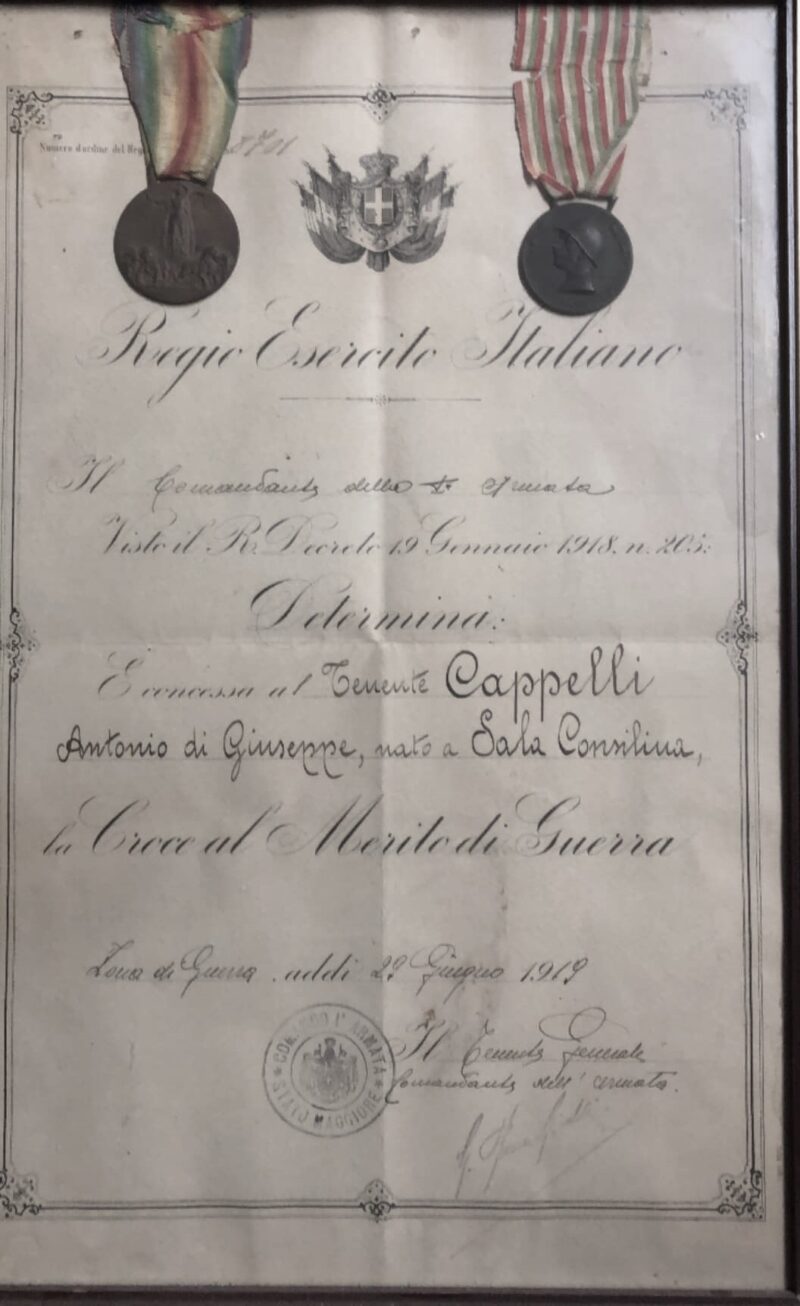 Numero d'ordine del Reg
3701
Regio Esercito Italiano
Il Comandante della Iª Armata
Visto il R. Decreto 19 Gennaio 1918. n. 205:
Determina:
È concessa al Tenente Cappelli
Antonio di Giuseppe, nato a Sala Consilina,
la Croce al Merito di Guerra
Zona di Guerra. addì 29 Giugno 1919
COMANDO Iª ARMATA
STATO MAGGIORE
Il Tenente Generale
Comandante dell'Armata.